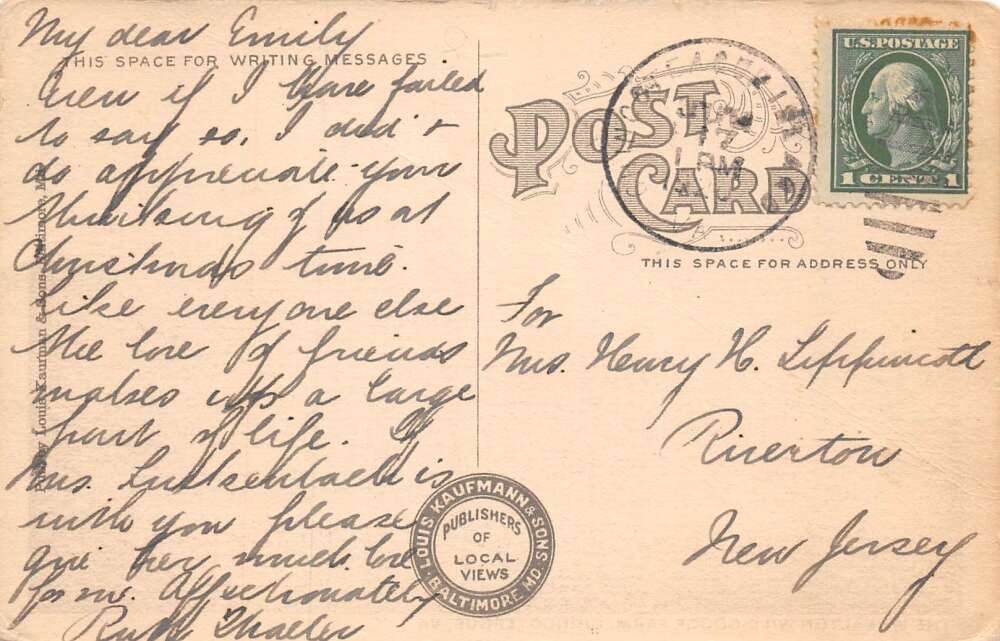 My dear Emily
THIS SPACE FOR WRITING MESSAGES
Even if I have failed
to say so, I did &
do appreciate your
thinking of us at
Christmas time.
Like everyone else
the love of friends
makes up a large
part of life. If
Mrs. is
with you please
give her much love
for me. Affectionately
Ruth
Louis Kaufmann & Sons, Baltimore, Md.
POST CARD
THIS SPACE FOR ADDRESS ONLY
U.S. POSTAGE
1 CENTS 1
17
1 PM
For
Mrs. Henry H. Lippincott
Riverton
New Jersey
LOUIS KAUFMANN & SONS
PUBLISHERS
OF
LOCAL
VIEWS
BALTIMORE MD.